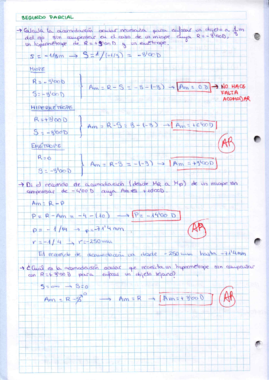 SEGUNDO PARCIAL
→ Calcula la acomodación ocular necesaria para enfocar un objeto a
del ojo sin compensar en el caso de un miope cuya R = -5'00 D
un hipermétrope de R = + y un emétrope.
S = → S = = -5'00 D
MIOPE
R = -5'00 D
S = -5'00 D
Am = R - S = -5 - (-5) → Am = 0 D → NO HACE FALTA ACOMODAR
HIPERMÉTROPE
S = -5'00 D
Am = R - S =
AR
EMÉTROPE
R = 0
S = -5'00 D
Am = R - S = - (-5) → Am = +5'00 D
→ El recorrido de acomodación (desde MR a MP) de un miope sin
compensar de -4'00 D cuya Am es
Am = R - P
P = R - Am = -4 - (10) → P = -14'00 D
AR
r = -1/4 → r = -250 mm
El recorrido de acomodación va desde -250 mm hasta
→ ¿Cuál es la acomodación ocular que necesita un hipermétrope sin compensar
para enfocar un objeto lejano?
S = → S = 0
Am = R - S → Am = R →
AR